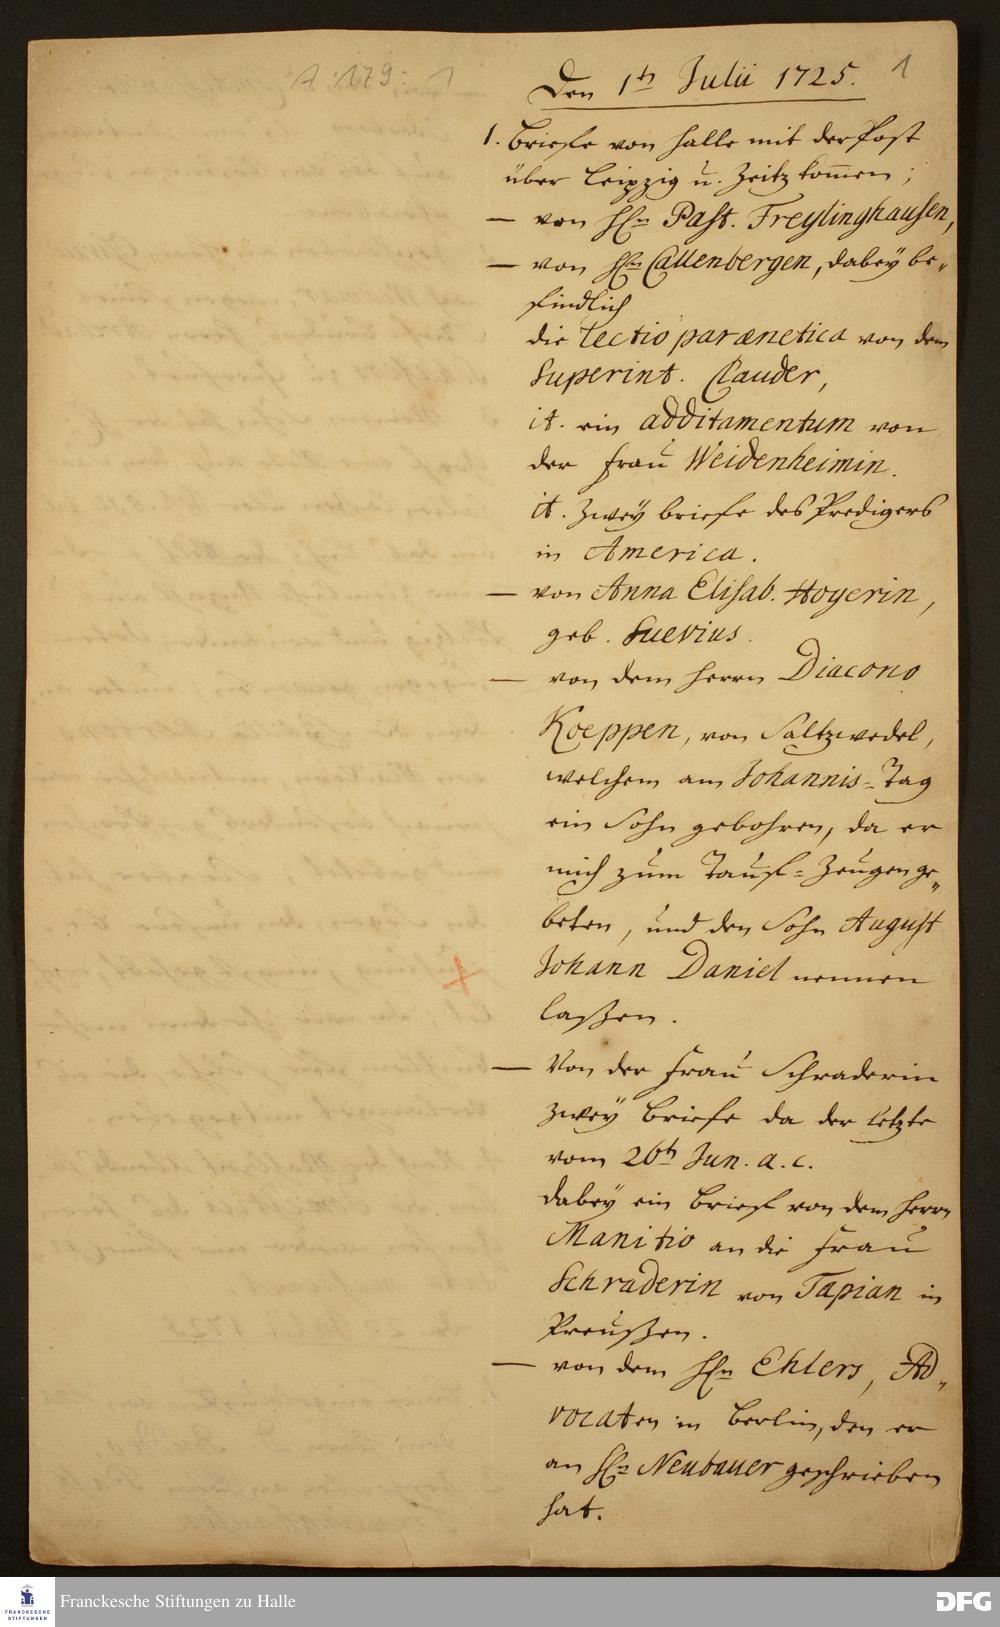 A : 179 : 1
1
Den 1ten Julii 1725.
1. Briefe von Halle mit der Post
über Leipzig u. Zeitz kommen;
— von Hn Past. Freylinghausen,
— von Hn Callenbergen, dabey be-
findlich
die lectio parænetica von dem
Superint. Clauder,
it. ein additamentum von
der Frau Weidenheimin.
it. zwey briefe des Predigers
in America.
— von Anna Elisab. Hoyerin,
geb. Suevius.
— von dem Herrn Diacono
Koeppen, von Saltzwedel,
welchem am Johannis-Tag
ein Sohn gebohren, da er
mich zum Tauf-Zeugen ge-
beten, und den Sohn August
Johann Daniel nennen
laßen.
— Von der Frau Schraderin
zwey Briefe da der letzte
vom 26ten Jun. a. c.
dabey ein Brief von dem Herrn
Manitio an die Frau
Schraderin von Tapian in
Preußen.
— von dem Hn Ehlers, Ad-
vocaten in Berlin, den er
an Hn Neubauer geschrieben
hat.
FRANCKESCHE
STIFTUNGEN
Franckesche Stiftungen zu Halle
DFG